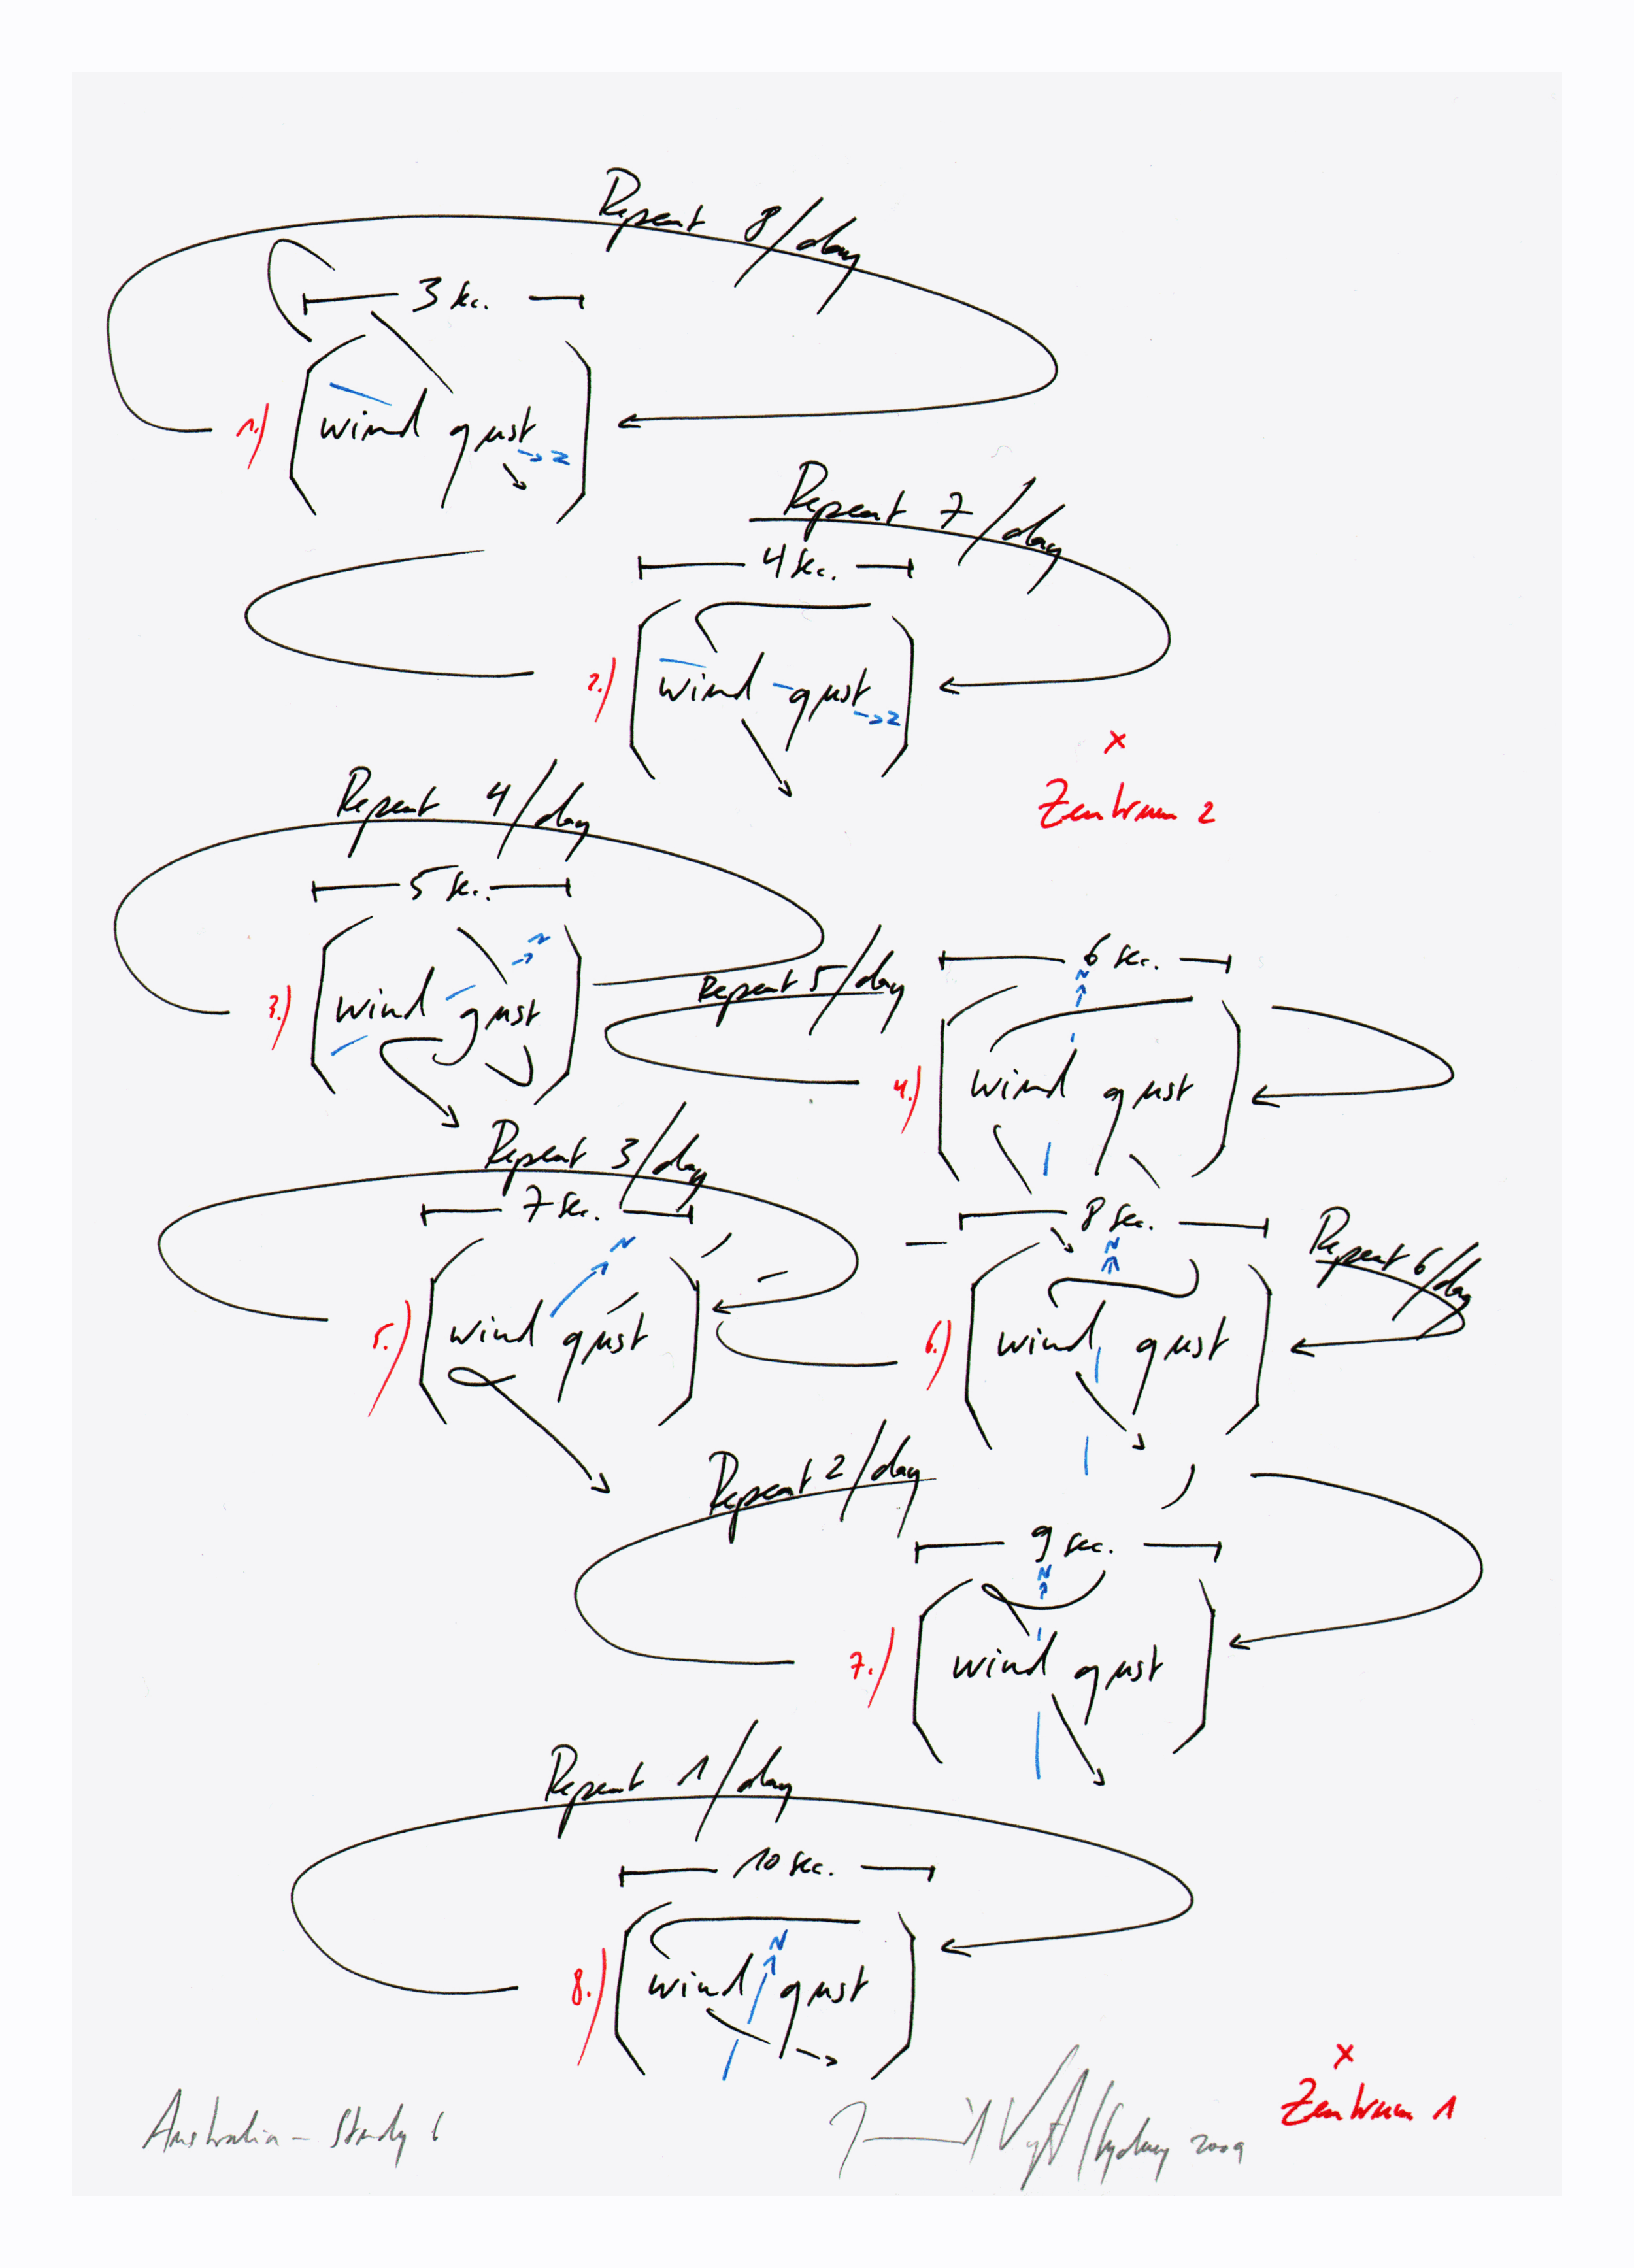 Repeat 8/day
3 sec.
1.) wind gust
N
Repeat 7/day
4 sec.
2.) wind gust
N
x
Zentrum 2
Repeat 4/day
5 sec.
N
3.) wind gust
Repeat 5/day
6 sec.
N
4.) wind gust
Repeat 3/day
7 sec.
N
5.) wind gust
8 sec.
Repeat 6/day
N
6.) wind gust
Repeat 2/day
9 sec.
N
7.) wind gust
Repeat 1/day
10 sec.
N
8.) wind gust
x
Zentrum 1
Australia – Study 6
/Sydney 2009